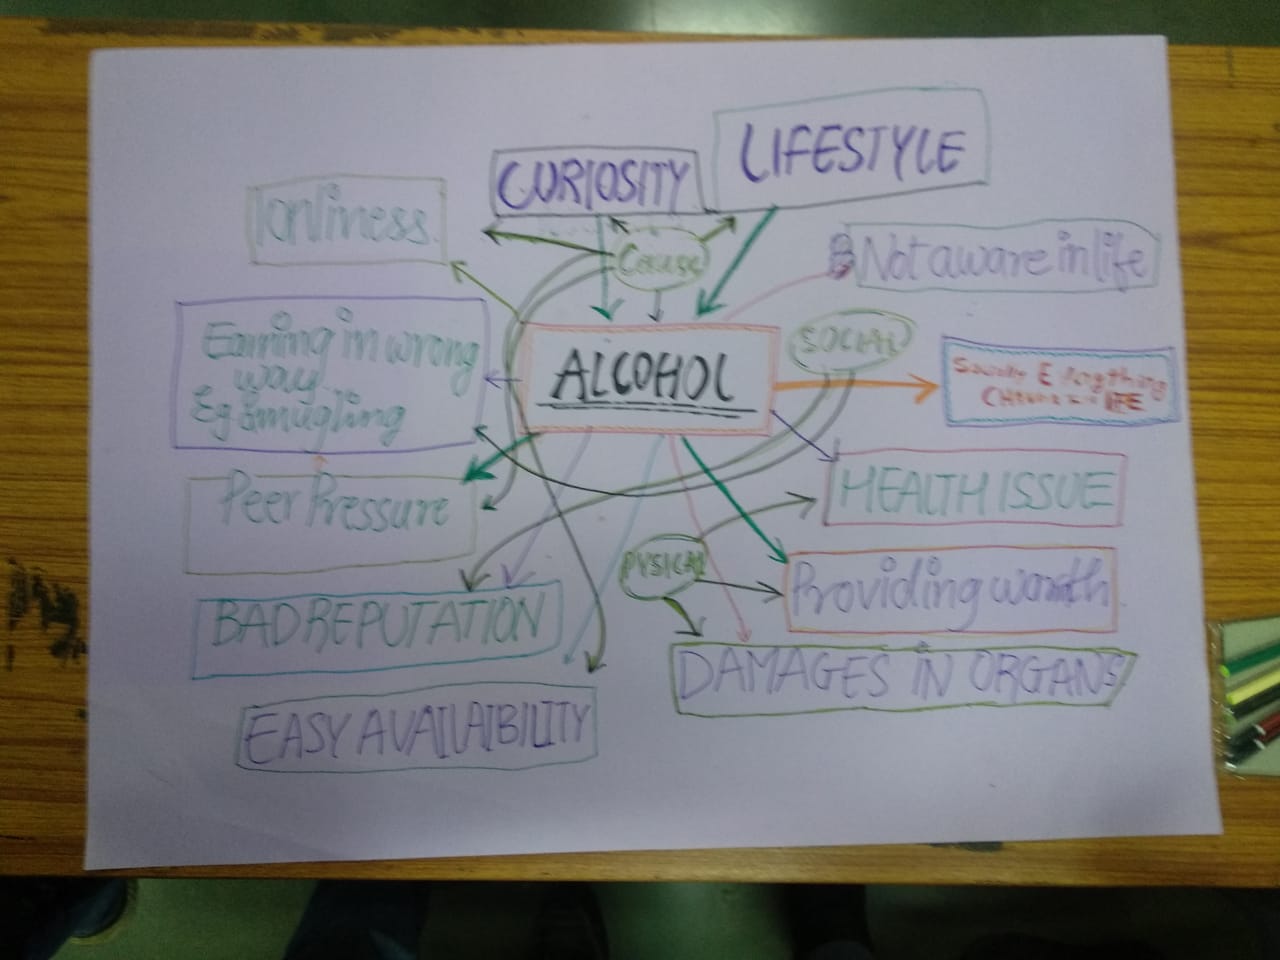 LIFESTYLE
CURIOSITY
lonliness.
Not aware in life
SOCIAL
Earning in wrong
way.
Eg Smugling
ALCOHOL
HEALTH ISSUE
Peer Pressure
PYSICAL
Providing
BAD REPUTATION
DAMAGES IN ORGANS
EASY AVAILAIBILITY